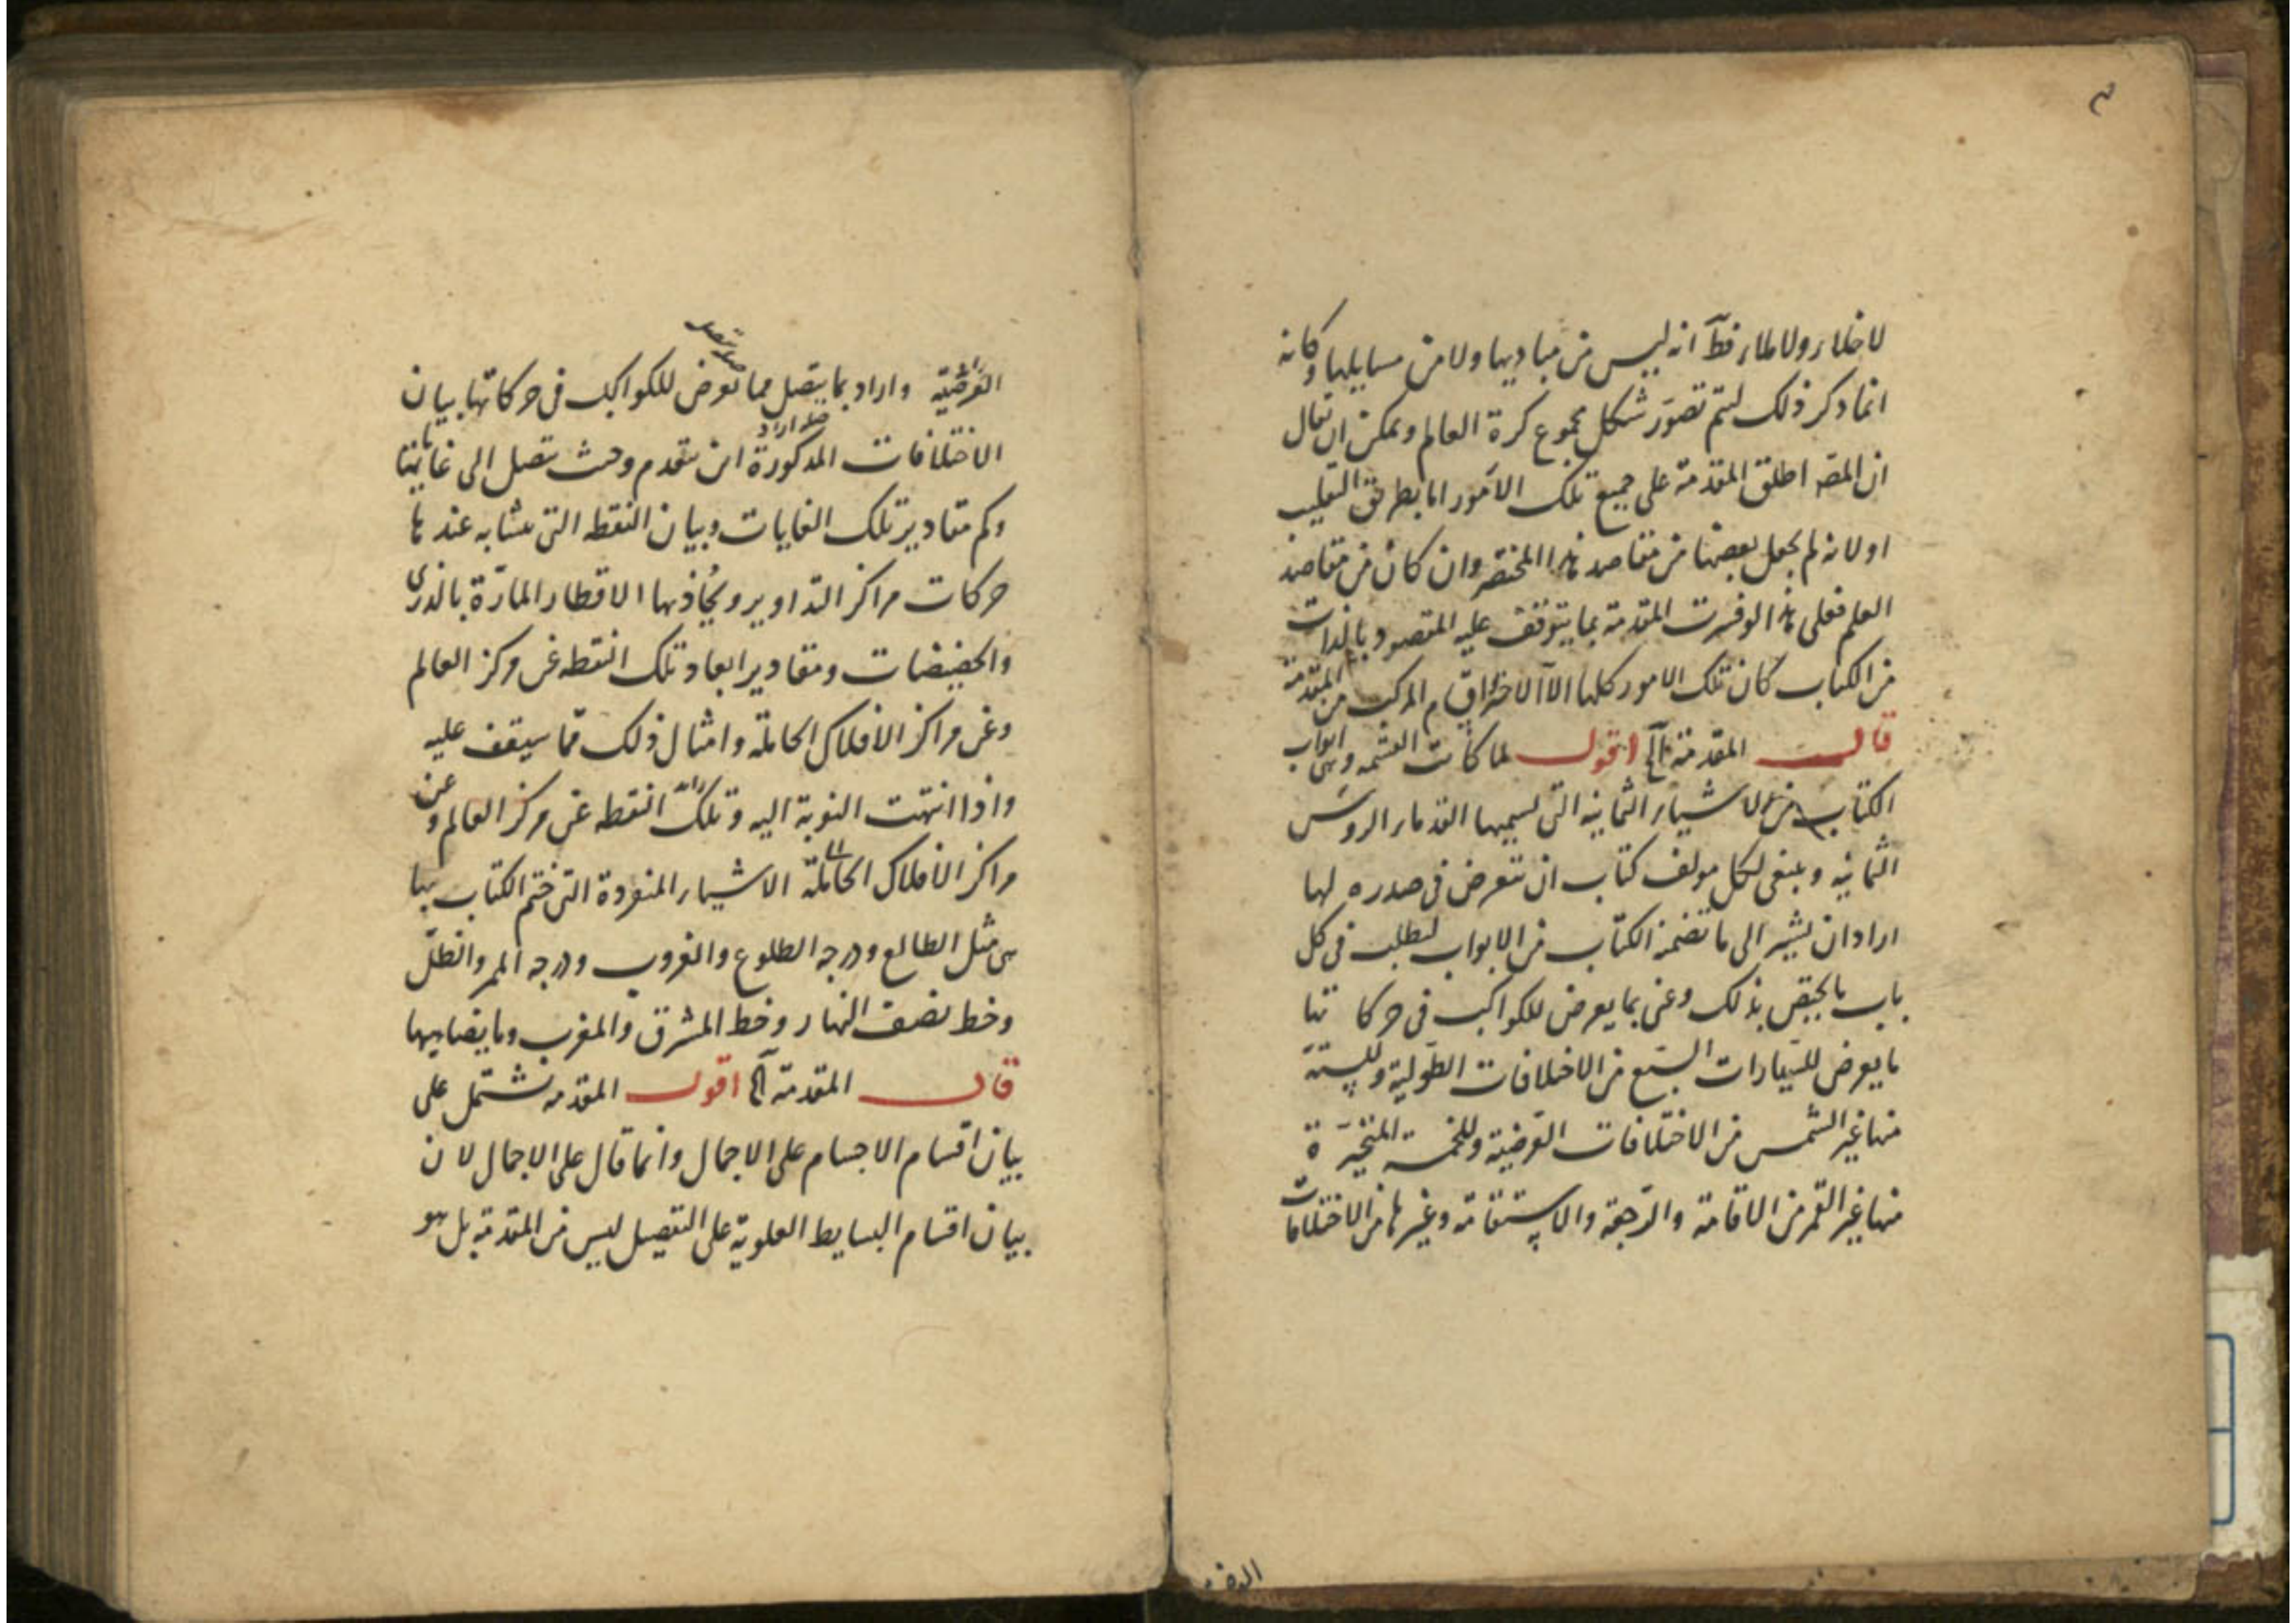 ٣
لا خلاء ولا ملاء فظ انه ليس من مباديها ولا من مسايلها وكانه
انما ذكر ذلك ليتم تصوّر شكل مجموع كرة العالم ويمكن ان يقال
ان المصه اطلق المقدمة على جميع تلك الامور اما بطريق التغليب
او لانه لم يجعل بعضها من مقاصد هذا المختصر وان كان من مقاصد
العلم فعلى هذا لو فسرت المقدمة بما يتوقف عليه المقصود بالذات
من الكتاب كان تلك الامور كلها الا الاخر المركب من المقدمة
قال المقدمة الخ اقول لما كانت القسمه وهى ابواب
الكتاب من الاشياء الثمانيه التى يسميها القدماء الروس
الثمانيه وينبغى لكل مولف كتاب ان يتعرض فى صدره لها
اراد ان يشير الى ما تضمنه الكتاب من الابواب ليطلب فى كل
باب ما يختص بذلك وعنى بما يعرض للكواكب فى حركاتها
ما يعرض للسيارات السبع من الاختلافات الطولية وللستة
منها غير الشمس من الاختلافات العرضية وللخمسة المتحيرة
منها غير القمر من الاقامة والرجعة والاستقامة وغيرها من الاختلافات
العرضية
العرضيّة واراد بما يتصل مما يعرض للكواكب فى حركاتها بيان
الاختلافات المذكورة اين يتقدم وحيث تصل الى غاياتها
وكم مقادير تلك الغايات وبيان النقطه التى يتشابه عندها
حركات مراكز التداوير ويحاذيها الاقطار المارّة بالذرى
والحضيضات ومقادير ابعاد تلك النقطه عن مركز العالم
وعن مراكز الافلاك الحاملة وامثال ذلك مما سيقف عليه
واذا انتهت النوبة اليه وتلك النقطه عن مركز العالم وعن
مراكز الافلاك الحاملة الاشياء المنفردة التى ختم الكتاب بها
هى مثل الطالع ودرجه الطلوع والغروب ودرجه الممر والظلّ
وخط نصف النهار وخط المشرق والمغرب وما يضاهيها
قال المقدمة الخ اقول المقدمه تشتمل على
بيان اقسام الاجسام على الاجمال وانما قال على الاجمال لان
بيان اقسام البسايط العلوية على التفصيل ليس من المقدمة بل هو